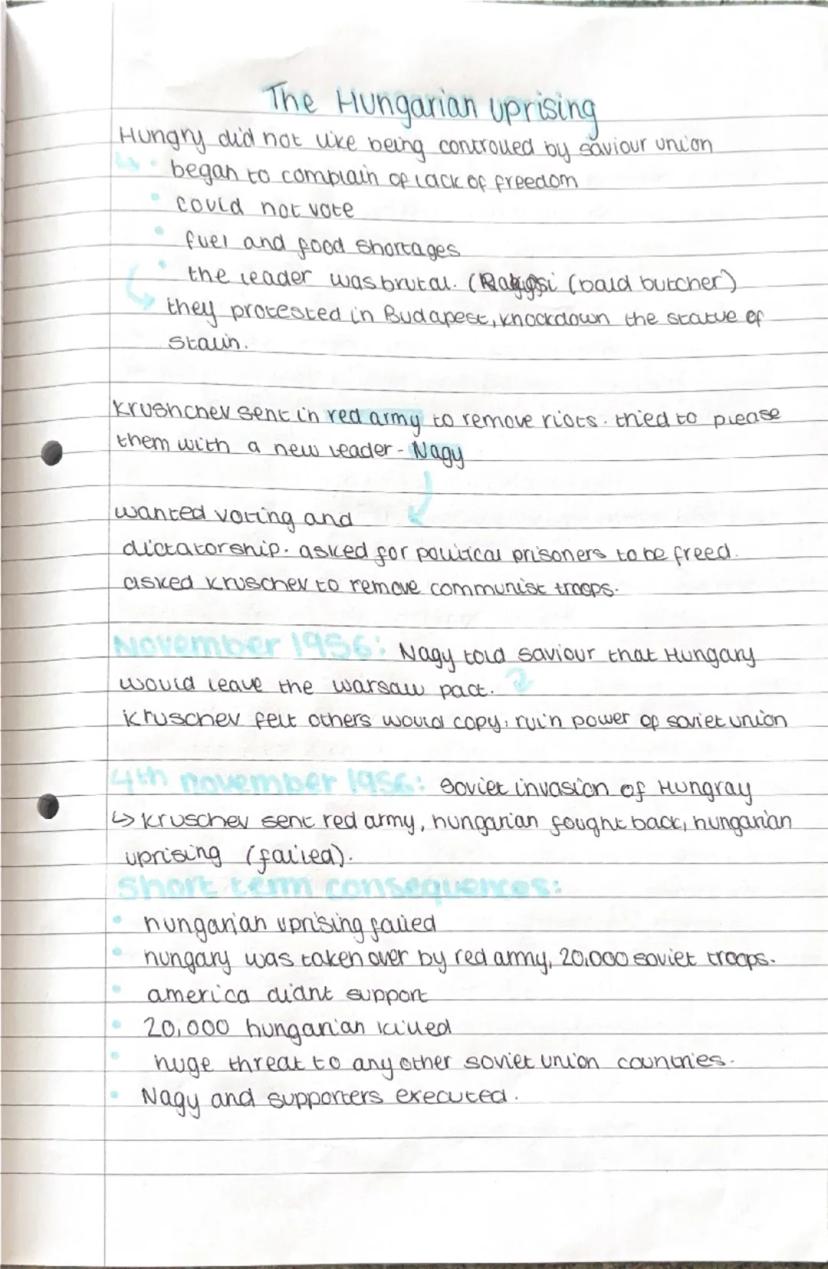 The Hungarian uprising
Hungry did not like being controlled by saviour union
↳ • began to complain of lack of freedom
• could not vote
• fuel and food shortages
• the leader was brutal. ( (bald butcher)
↳ they protested in Budapest, knockdown the statue of
Stalin.
Krushchev sent in red army to remove riots. tried to please
them with a new leader - Nagy
wanted voting and
dictatorship. asked for political prisoners to be freed.
asked Kruschev to remove communist troops.
November 1956: Nagy told saviour that Hungary
would leave the warsaw pact.
Kruschev felt others would copy, ruin power of soviet union
4th november 1956: Soviet invasion of Hungray
↳ Kruschev sent red army, hungarian fought back, hungarian
uprising (failed).
Short term consequences:
• hungarian uprising failed
• hungary was taken over by red army, 20,000 soviet troops.
• america didnt support
• 20,000 hungarian killed
• huge threat to any other soviet union countries.
• Nagy and supporters executed.